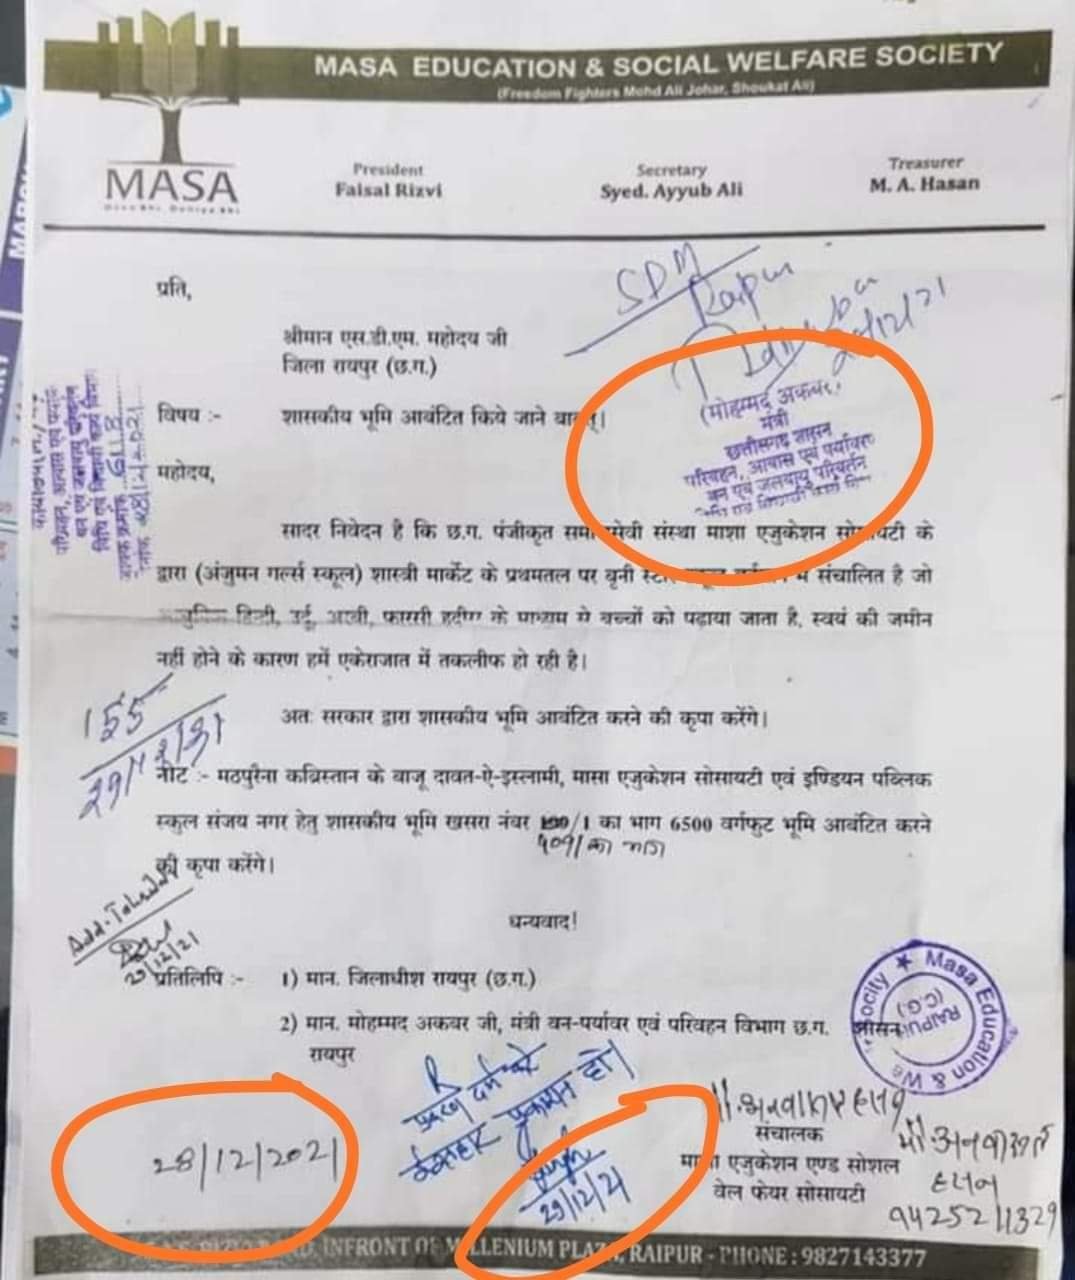 MASA EDUCATION & SOCIAL WELFARE SOCIETY
(Freedom Fighters Mohd Ali Johar, Shoukat Ali)
MASA
President
Faisal Rizvi
Secretary
Syed. Ayyub Ali
Treasurer
M. A. Hasan
SDM
Raipur
प्रति,
श्रीमान एस.डी.एम. महोदय जी
जिला रायपुर (छ.ग.)
(मोहम्मद अकबर)
मंत्री
छत्तीसगढ़ शासन
परिवहन, आवास एवं पर्यावरण
वन एवं जलवायु परिवर्तन
विषय :- शासकीय भूमि आवंटित किये जाने बाबत्।
महोदय,
सादर निवेदन है कि छ.ग. पंजीकृत समाजसेवी संस्था माशा एजुकेशन सोसायटी के
द्वारा (अंजुमन गर्ल्स स्कूल) शास्त्री मार्केट के प्रथमतल पर बृनी में संचालित है जो
हिन्दी, उर्दू, अरबी, फारसी के माध्यम से बच्चों को पढ़ाया जाता है, स्वयं की जमीन
नहीं होने के कारण हमें एकेराजात में तकलीफ हो रही है।
155
29/12/21
अतः सरकार द्वारा शासकीय भूमि आवंटित करने की कृपा करेंगे।
नोट :- मठपुरैना कब्रिस्तान के बाजू दावत-ऐ-इस्लामी, मासा एजुकेशन सोसायटी एवं इण्डियन पब्लिक
स्कुल संजय नगर हेतु शासकीय भूमि खसरा नंबर /1 का भाग 6500 वर्गफुट भूमि आवंटित करने
की कृपा करेंगे।
धन्यवाद!
29/12/21
प्रतिलिपि :- 1) मान. जिलाधीश रायपुर (छ.ग.)
2) मान. मोहम्मद अकबर जी, मंत्री वन-पर्यावर एवं परिवहन विभाग छ.ग. शासन
रायपुर
Masa Education & We Society
RAIPUR
(C.G.)
प्रकरण दर्ज करे
ईश्तहार प्रकाशन हो।
29/12/21
28/12/2021
संचालक
मासा एजुकेशन एण्ड सोशल
वेल फेयर सोसायटी
मो. अनवारुल हसन
94252 11329
INFRONT OF MILLENIUM PLAZA, RAIPUR - PHONE : 9827143377